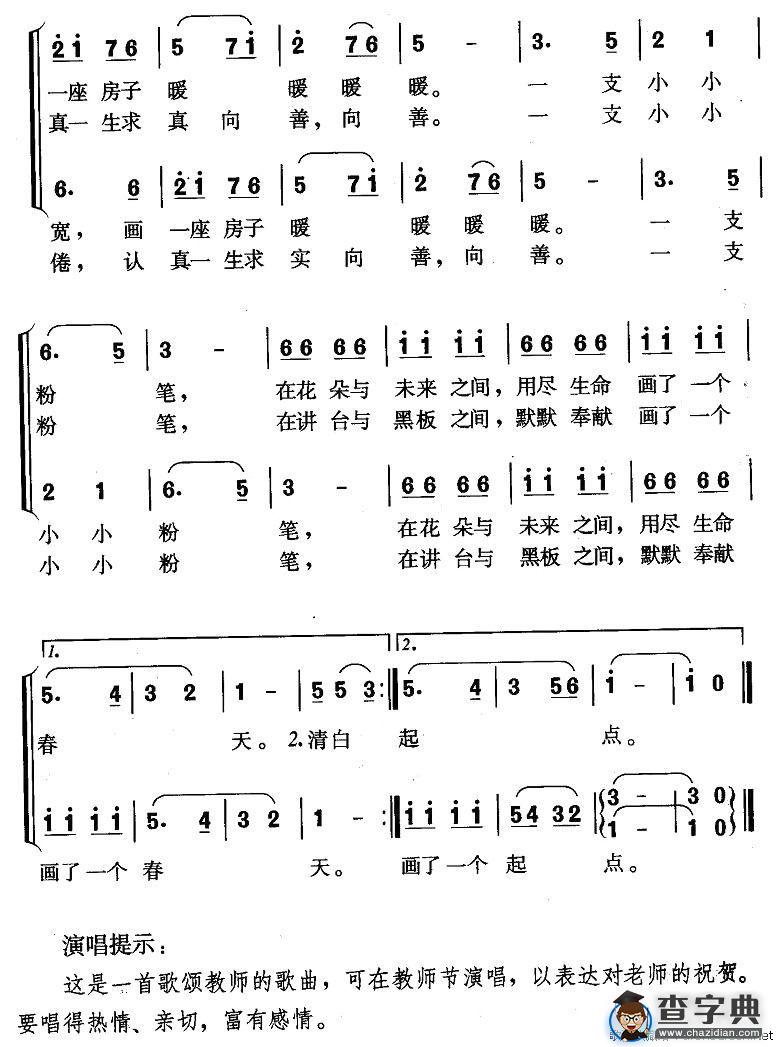 2 1 7 6 | 5 7 1 | 2 7 6 | 5 - | 3. 5 | 2 1 |
一座 房子 暖 暖 暖 暖。 一 支 小 小
真一 生求 真 向 善，向 善。 一 支 小 小
6. 6 | 2 1 7 6 | 5 7 1 | 2 7 6 | 5 - | 3. 5 |
宽， 画 一座 房子 暖 暖 暖 暖。 一 支
倦， 认 真一 生求 实 向 善，向 善。 一 支
6. 5 | 3 - | 66 66 | 11 11 | 66 66 | 11 11 |
粉 笔， 在花 朵与 未来 之间，用尽 生命 画了 一个
粉 笔， 在讲 台与 黑板 之间，默默 奉献 画了 一个
2 1 | 6. 5 | 3 - | 66 66 | 11 11 | 66 66 |
小 小 粉 笔， 在花 朵与 未来 之间，用尽 生命
小 小 粉 笔， 在讲 台与 黑板 之间，默默 奉献
1. 2.
5. 4 | 3 2 | 1 - | 5 5 3 :| 5. 4 | 3 56 | 1 - | 1 0 |
春 天。 2.清白 起 点。
11 11 | 5. 4 | 3 2 | 1 - :| 11 11 | 54 32 | 3 - | 3 0 |
1 - | 1 0
画了 一个 春 天。 画了 一个 起 点。
演唱提示：
这是一首歌颂教师的歌曲，可在教师节演唱，以表达对老师的祝贺。
要唱得热情、亲切，富有感情。
查字典
www.chazidian.com